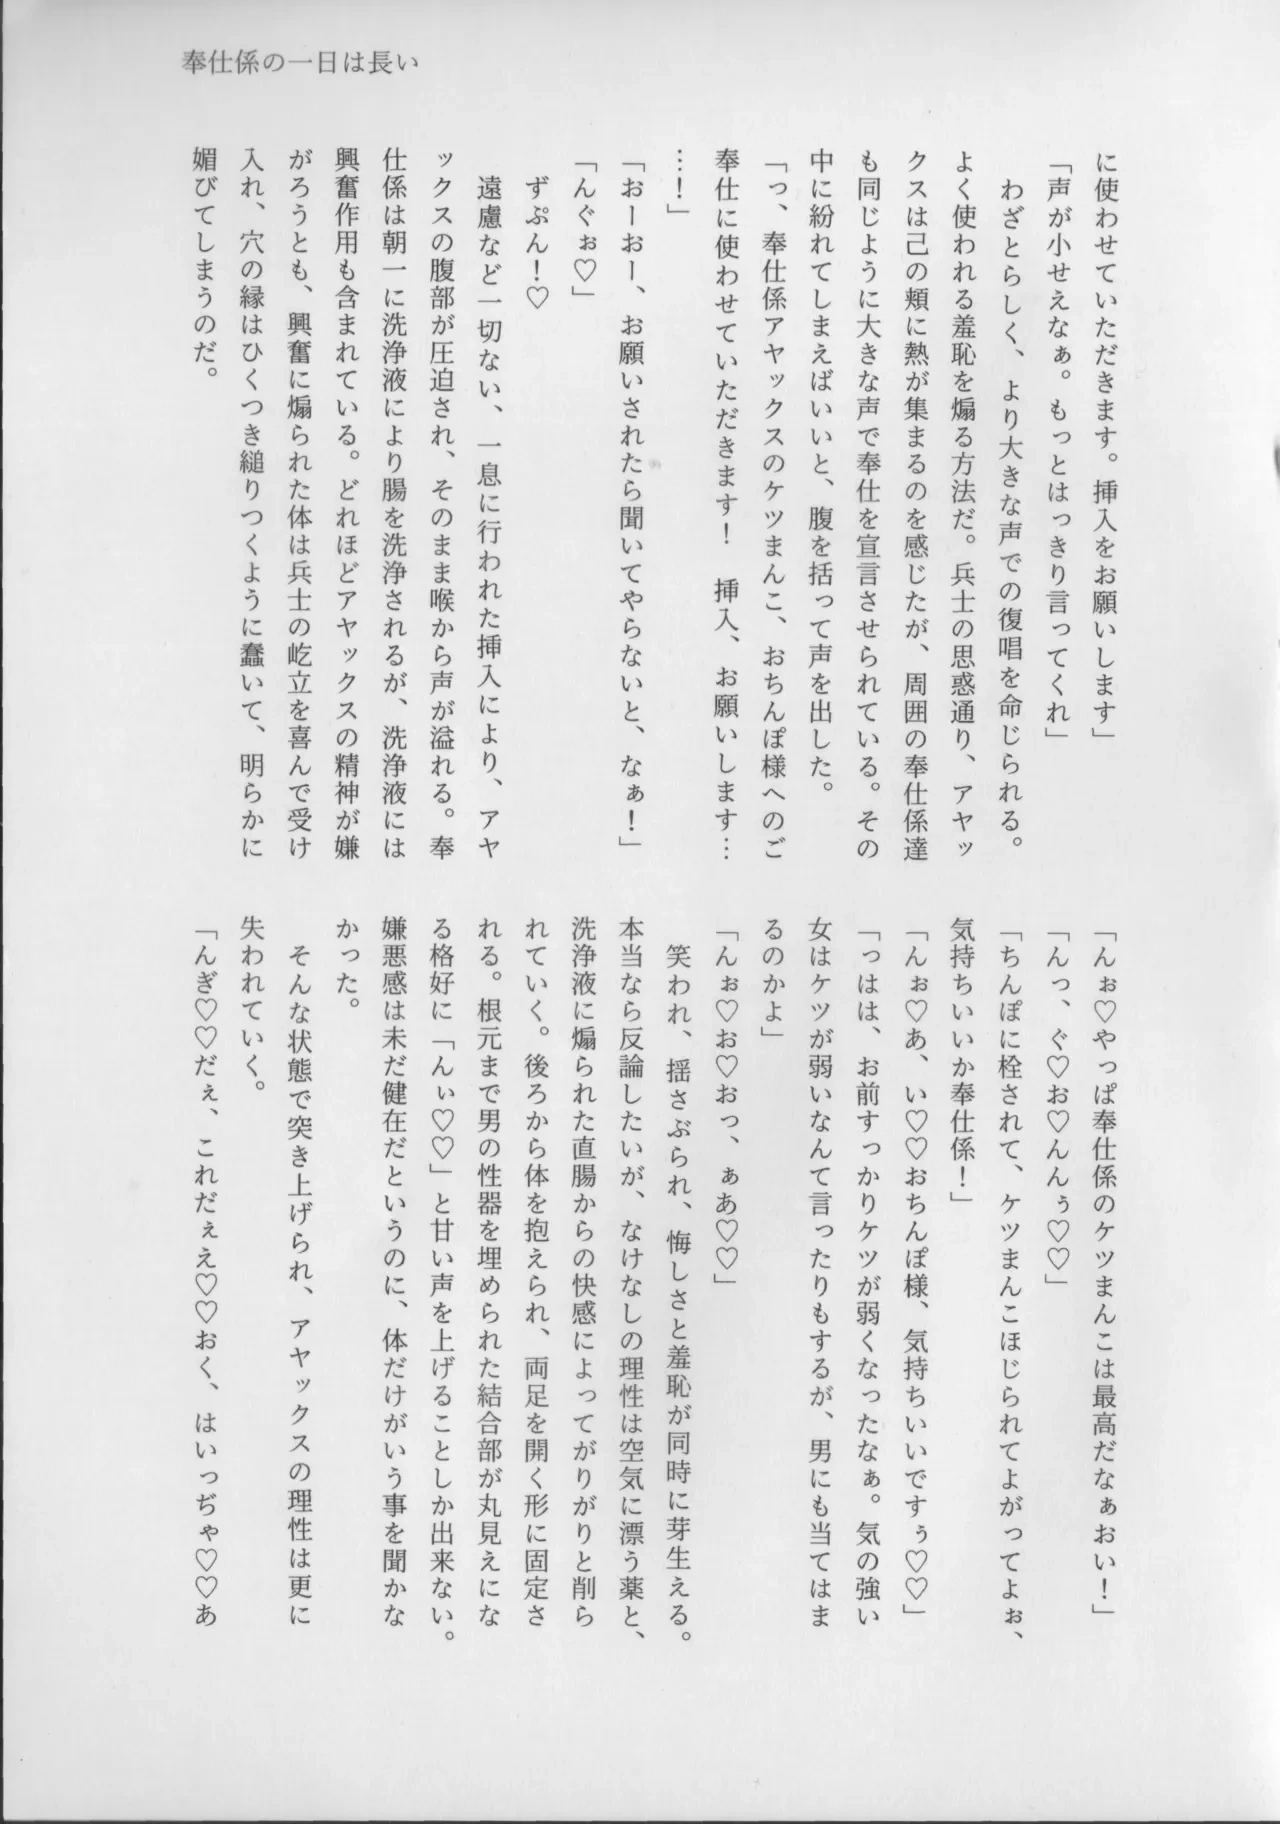 奉仕係の一日は長い
に使わせていただきます。挿入をお願いします」
「声が小せえなぁ。もっとはっきり言ってくれ」
わざとらしく、より大きな声での復唱を命じられる。
よく使われる羞恥を煽る方法だ。兵士の思惑通り、アヤッ
クスは己の頬に熱が集まるのを感じたが、周囲の奉仕係達
も同じように大きな声で奉仕を宣言させられている。その
中に紛れてしまえばいいと、腹を括って声を出した。
「っ、奉仕係アヤックスのケツまんこ、おちんぽ様へのご
奉仕に使わせていただきます！　挿入、お願いします…
…！」
「おーおー、お願いされたら聞いてやらないと、なぁ！」
「んぐぉ♡」
ずぷん！♡
遠慮など一切ない、一息に行われた挿入により、アヤ
ックスの腹部が圧迫され、そのまま喉から声が溢れる。奉
仕係は朝一に洗浄液により腸を洗浄されるが、洗浄液には
興奮作用も含まれている。どれほどアヤックスの精神が嫌
がろうとも、興奮に煽られた体は兵士の屹立を喜んで受け
入れ、穴の縁はひくつき縋りつくように蠢いて、明らかに
媚びてしまうのだ。
「んぉ♡やっぱ奉仕係のケツまんこは最高だなぁおい！」
「んっ、ぐ♡お♡んんぅ♡♡」
「ちんぽに栓されて、ケツまんこほじられてよがってよぉ、
気持ちいいか奉仕係！」
「んぉ♡あ、い♡♡おちんぽ様、気持ちいいですぅ♡♡」
「っはは、お前すっかりケツが弱くなったなぁ。気の強い
女はケツが弱いなんて言ったりもするが、男にも当てはま
るのかよ」
「んぉ♡お♡おっ、ぁあ♡♡」
笑われ、揺さぶられ、悔しさと羞恥が同時に芽生える。
本当なら反論したいが、なけなしの理性は空気に漂う薬と、
洗浄液に煽られた直腸からの快感によってがりがりと削ら
れていく。後ろから体を抱えられ、両足を開く形に固定さ
れる。根元まで男の性器を埋められた結合部が丸見えにな
る格好に「んぃ♡♡」と甘い声を上げることしか出来ない。
嫌悪感は未だ健在だというのに、体だけがいう事を聞かな
かった。
そんな状態で突き上げられ、アヤックスの理性は更に
失われていく。
「んぎ♡♡だぇ、これだぇえ♡♡おく、はいっぢゃ♡♡あ